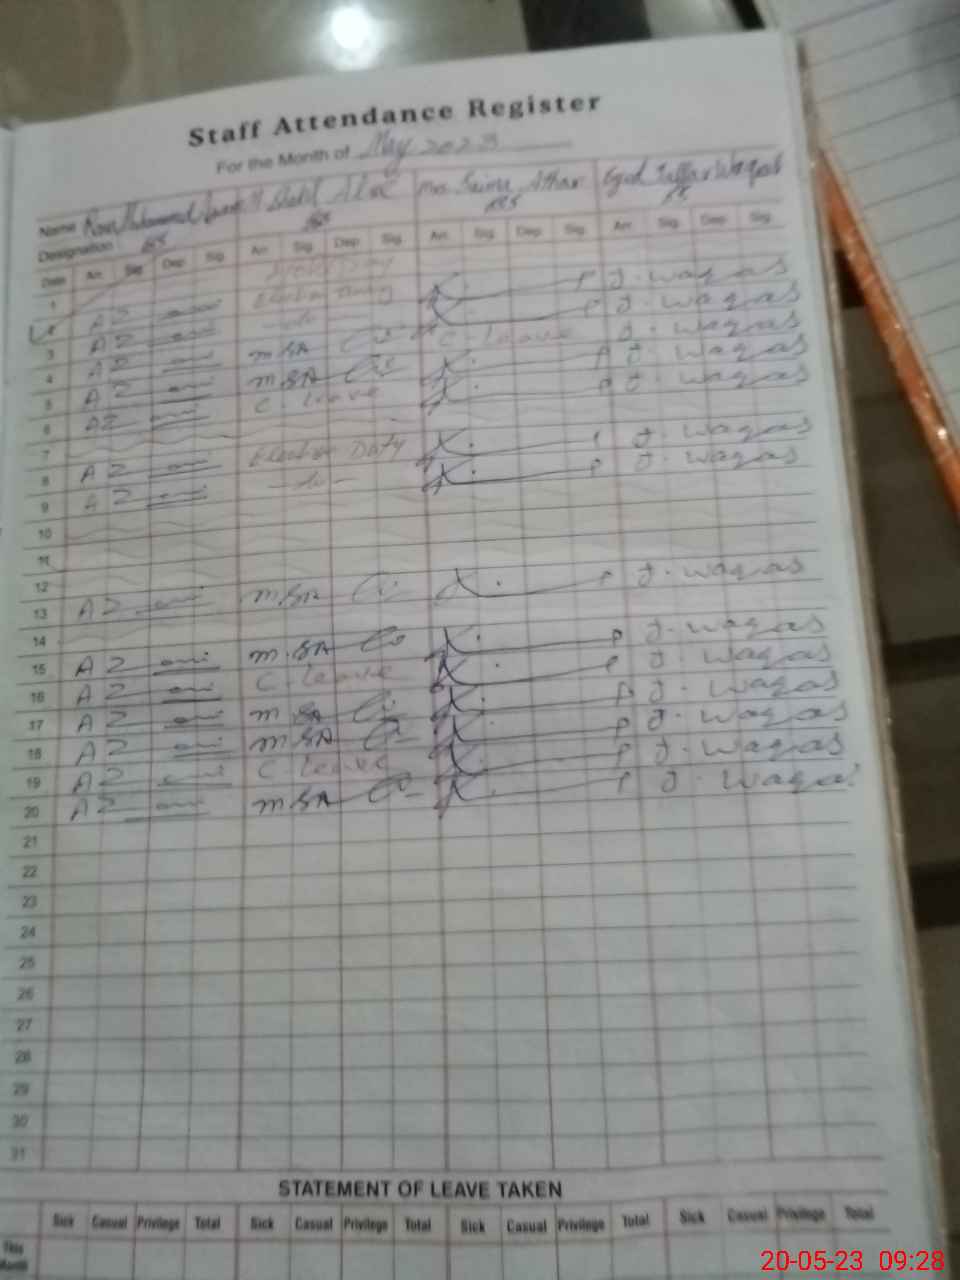 Staff Attendance Register
For the Month of May 2023
Name Mrs. Saima Athar Syed Jaffar Waqas
Designation
Date Arr. Sig. Dep. Sig. Arr. Sig. Dep. Sig. Arr. Sig. Dep. Sig. Arr. Sig. Dep. Sig.
1
AZ Election Duty P J. waqas
AZ P J. waqas
3 AZ M.SA C. Leave J. waqas
4 AZ M.SA P J. waqas
5 AZ C. Leave P J. waqas
6
7 AZ Election Duty J. waqas
8 AZ P J. waqas
9
10
11
12
13 AZ M.SA P J. waqas
14
15 AZ M.SA P J. waqas
16 AZ C. Leave P J. waqas
17 AZ M.SA P J. waqas
18 AZ M.SA P J. waqas
19 AZ C. Leave P J. waqas
20 AZ M.SA P J. waqas
21
22
23
24
25
26
27
28
29
30
31
STATEMENT OF LEAVE TAKEN
Sick Casual Privilege Total Sick Casual Privilege Total Sick Casual Privilege Total Sick Casual Privilege Total
This
Month
20-05-23 09:28